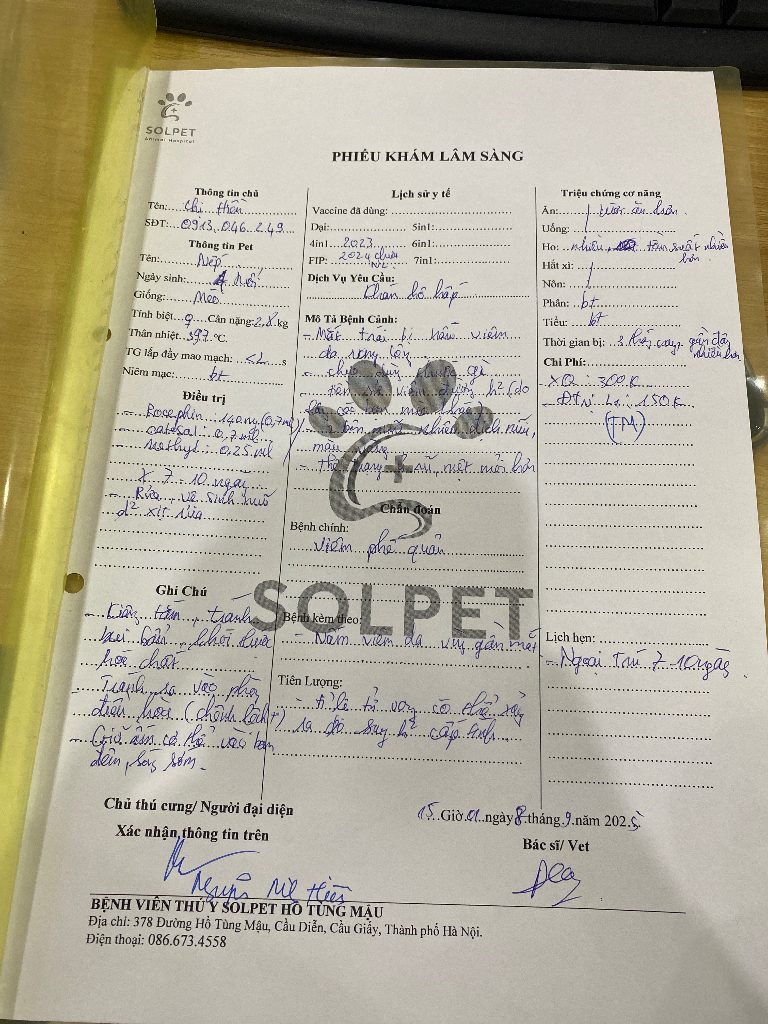 SOLPET
Animal Hospital
PHIẾU KHÁM LÂM SÀNG
Thông tin chủ
Tên: Chị Hiền
SĐT: 0913.046.249
Thông tin Pet
Tên: Nếp
Ngày sinh: 4 tuổi
Giống: Mèo
Tính biệt: ♀ Cân nặng: 2,8 kg
Thân nhiệt: 39,7 °C.
TG lấp đầy mao mạch: <2 s
Niêm mạc: bt
Điều trị
- Rocephin: 140mg (0,7ml)
- catosal: 0,7ml
- methyl: 0,25ml
x 7-10 ngày
- Rửa, vệ sinh mũi
d² xịt rửa
Ghi Chú
- Kiêng tắm, tránh
bụi bẩn, khói thuốc
hóa chất
- Tránh ra vào phòng
điều hoà (chênh lệch t°)
- Giữ ấm cơ thể vào ban
đêm, sáng sớm.
Lịch sử y tế
Vaccine đã dùng:
Dại: 5in1:
4in1 2023 6in1:
FIP: 2024 7in1:
Dịch Vụ Yêu Cầu:
Khám hô hấp
Mô Tả Bệnh Cảnh:
- Mắt trái bị nấm viêm
da rụng lông
- chụp
- viêm đường h² (do
- 2 bên mũi nhiều dịch mũi,
màu
- Thể trạng ủ rũ, mệt mỏi hơn
Chẩn đoán
Bệnh chính:
Viêm phế quản
SOLPET
Bệnh kèm theo:
- Nấm viêm da vùng gần mắt
Tiên Lượng:
- tỉ lệ tử vong có thể xảy
ra do suy h² cấp tính
Triệu chứng cơ năng
Ăn: / lười ăn hơn
Uống: /
Ho: nhiều, tần suất nhiều
hơn
Hắt xì: /
Nôn: /
Phân: bt
Tiểu: bt
Thời gian bị: 3 tháng gần đây
nhiều hơn
Chi Phí:
- XQ: 300K
- ĐTrị L1: 150K
(TM)
Lịch hẹn:
- Ngoại Trú 7-10 ngày
15 Giờ 01 ngày 8 tháng 9 năm 2025
Chủ thú cưng/ Người đại diện
Xác nhận thông tin trên
Bác sĩ/ Vet
BỆNH VIỆN THÚ Y SOLPET HỒ TÙNG MẬU
Địa chỉ: 378 Đường Hồ Tùng Mậu, Cầu Diễn, Cầu Giấy, Thành phố Hà Nội.
Điện thoại: 086.673.4558